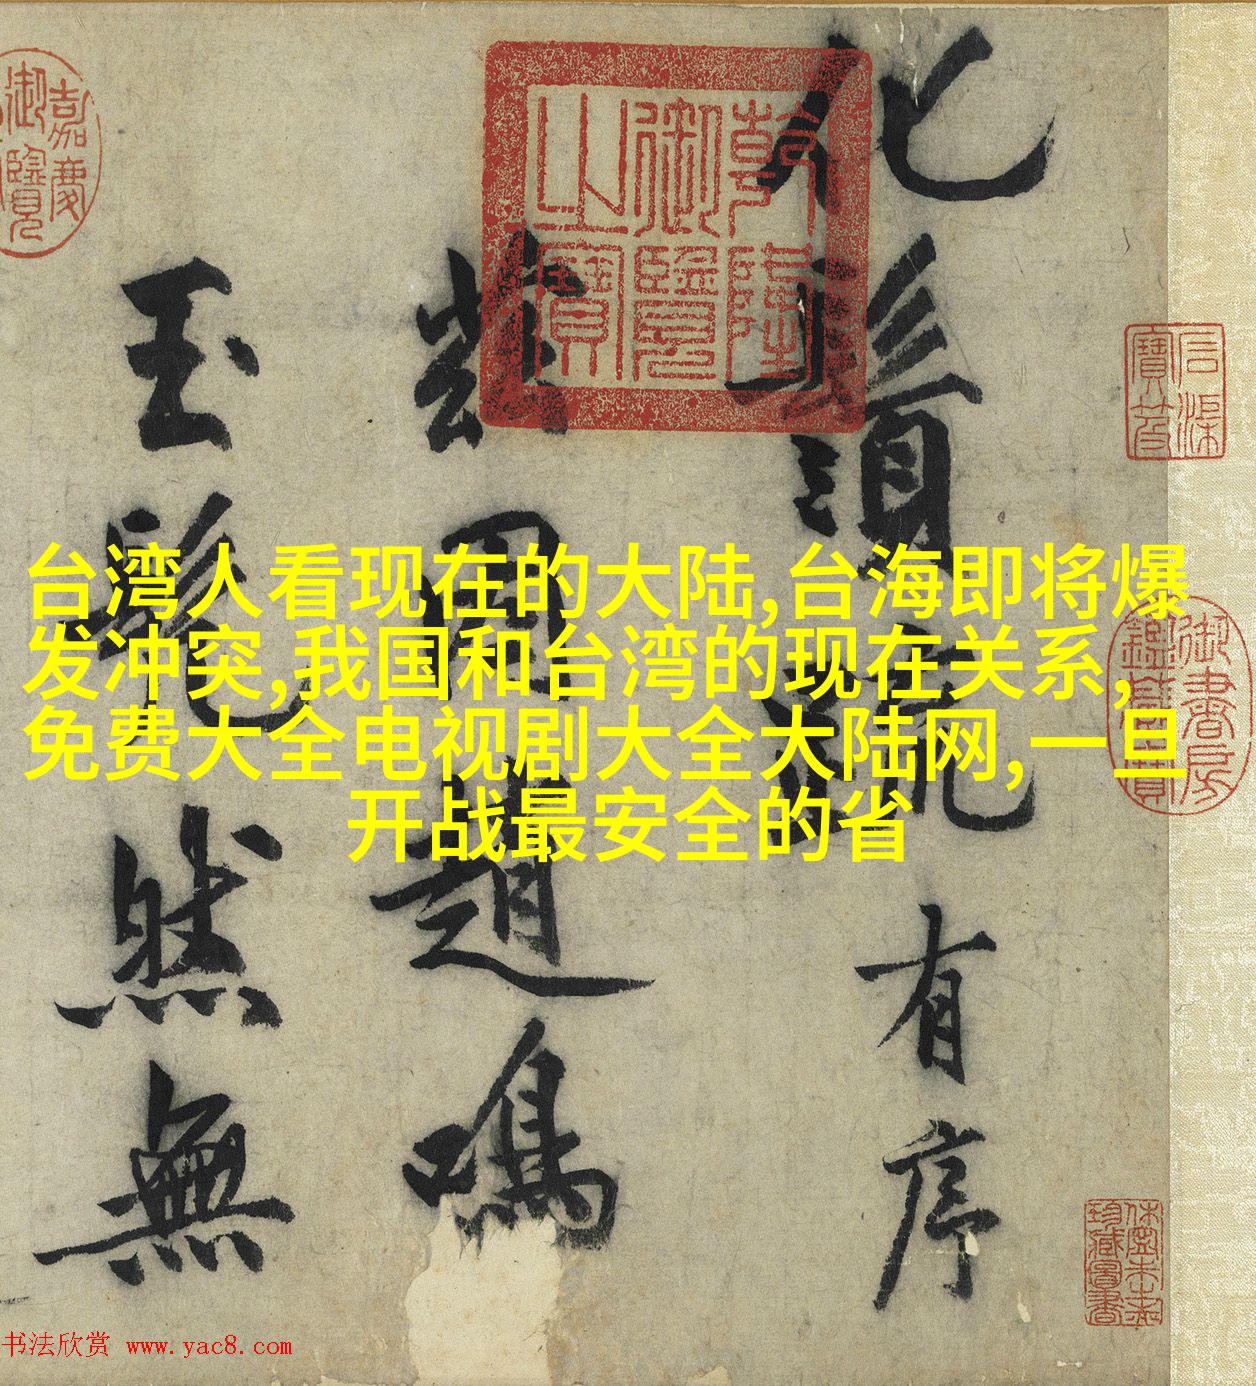 台湾人看现在的大陆,台海即将爆
发冲突,我国和台湾的现在关系,
免费大全电视剧大全大陆网,一旦
开战最安全的省
化
須
有序
岩
趙鳴
玉
然無
乾隆
御覽
之寶
嘉慶
御覽
石渠
寶笈
御書房
鑑藏寶
珍藏圖書
书法欣赏 www.yac8.com